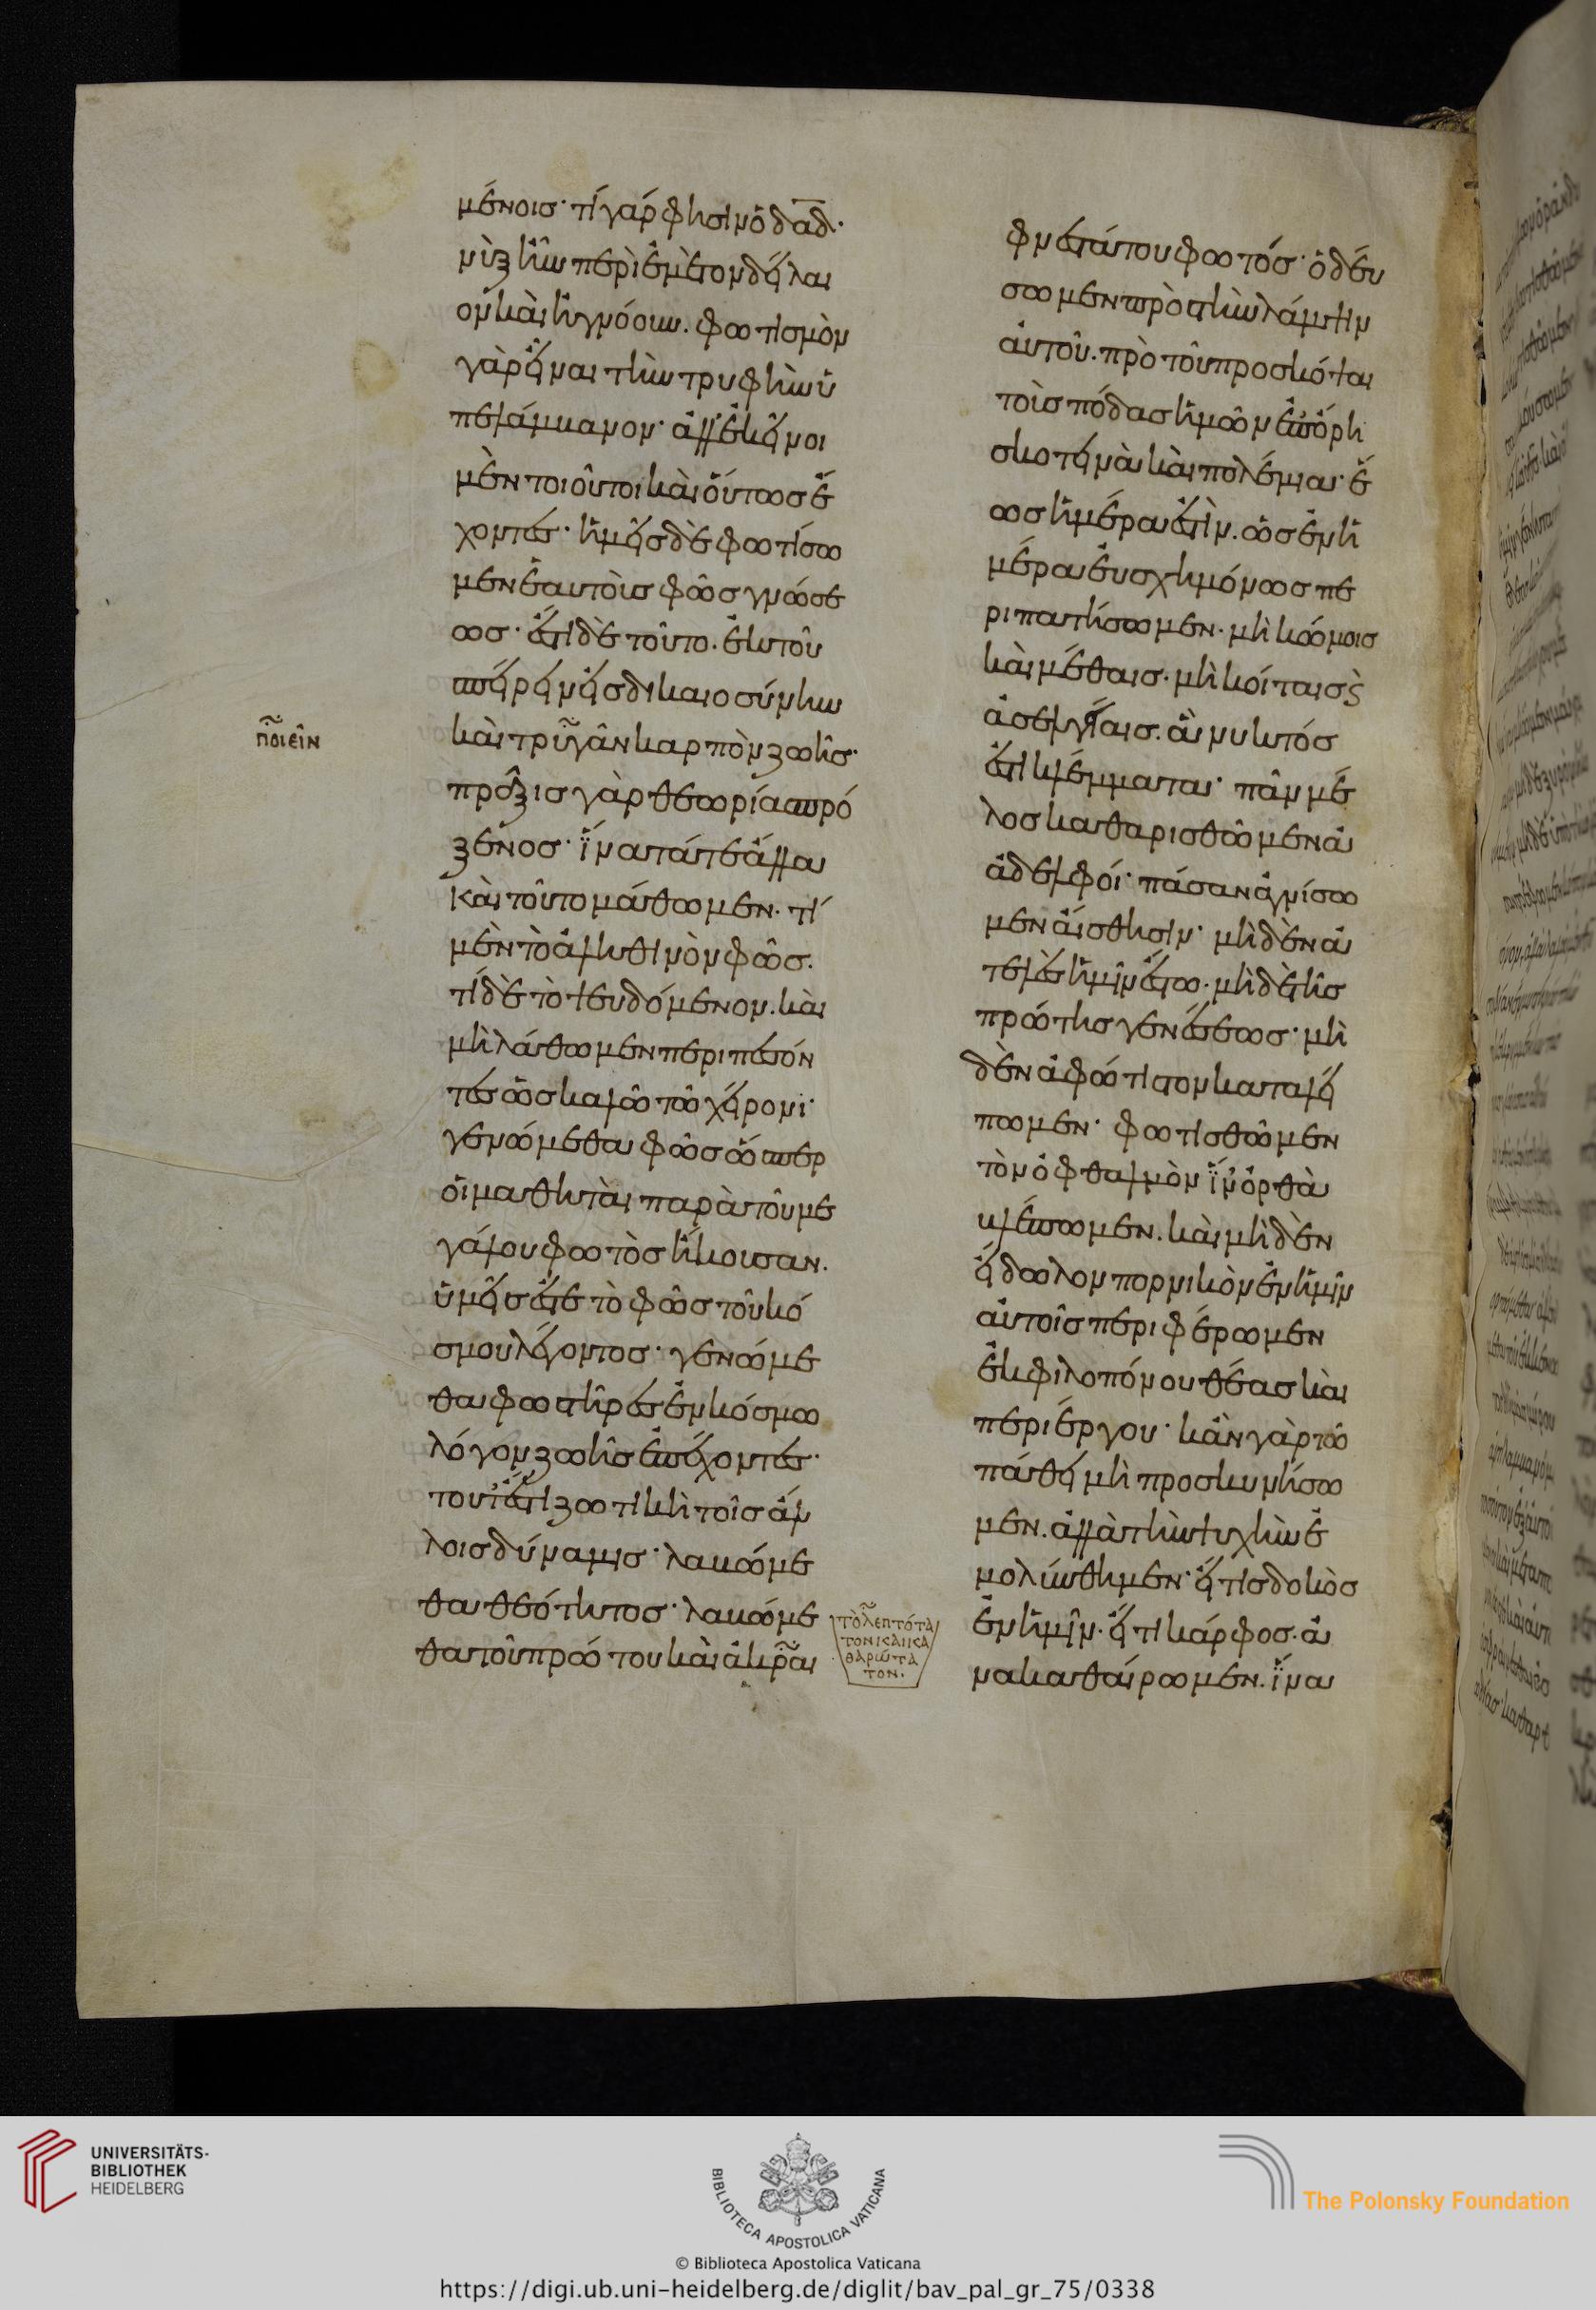 μένοις· τί γάρ φησιν ὁ δαδ·
νὺξ ἦν περὶ ἐμὲ τὸν δείλαι
ον καὶ ἠγνόουν. φωτισμὸν
γὰρ εἶναι τὴν τρυφὴν ὑ
πελάμβανον· ἀλλ' ἐκεῖνοι
μὲν τοιοῦτοι καὶ οὕτως ἔ
χοντες· ἡμεῖς δὲ φωτίσω
μεν ἑαυτοὺς φῶς γνώσε
ως· ἔστι δὲ τοῦτο. ἐκ τοῦ
σπείρειν εἰς δικαιοσύνην
καὶ τρυγᾶν καρπὸν ζωῆς·
πρᾶξις γὰρ θεωρίας πρό
ξενος· ἵνα τά τε ἄλλα
καὶ τοῦτο μάθωμεν. τί
μὲν τὸ ἀληθινὸν φῶς.
τί δὲ τὸ ψευδόμενον. καὶ
μὴ λάθωμεν περιπεσόν
τες ὡς καλῶ τῷ χείρονι·
γενώμεθα φῶς ὥσπερ
οἱ μαθηταὶ παρὰ τοῦ με
γάλου φωτὸς ἤκουσαν.
ὑμεῖς ἐστε τὸ φῶς τοῦ κό
σμου λέγοντος· γενώμε
θα φωστῆρες ἐν κόσμω
λόγον ζωῆς ἐπέχοντες·
τουτέστι ζωτικὴ τοῖς ἄλ
λοις δύναμις· λαβώμε
θα θεότητος· λαβώμε
θα τοῦ πρώτου καὶ ἀκραι
ποιεῖν
τὸ λεπτότα
τον καὶ κα
θαρώτα
τον.
φνεστάτου φωτός· ὁδεύ
σωμεν πρὸς τὴν λάμψιν
αὐτοῦ. πρὸ τοῦ προσκόψαι
τοὺς πόδας ἡμῶν ἐπ' ὄρη
σκοτεινὰ καὶ πολέμια· ἕ
ως ἡμέρα ἐστὶν. ὡς ἐν ἡ
μέρα εὐσχημόνως πε
ριπατήσωμεν. μὴ κώμοις
καὶ μέθαις. μὴ κοίταις ϗ
ἀσελγείαις. ἃ νυκτός
ἐστι κλέμματα· πᾶν μέ
λος καθαρισθῶμεν ὦ
ἀδελφοί· πάσαν ἁγνίσω
μεν αἴσθησιν· μηδὲν ἀ
τελὲς ἡμῖν ἔστω. μὴ δὲ τῆς
πρώτης γενέσεως· μη
δὲν ἀφώτιστον καταλεί
πωμεν· φωτισθῶμεν
τὸν ὀφθαλμὸν ἵν' ὀρθὰ
βλέπωμεν. καὶ μηδὲν
εἴδωλον πορνικὸν ἐν ἡμῖν
αὐτοῖς περιφέρωμεν
ἐκ φιλοπόνου θέας καὶ
περιέργου· κἂν γὰρ τῷ
πάθει μὴ προσκυνήσω
μεν. ἀλλὰ τὴν ψυχὴν ἐ
μολύνθημεν· εἴ τις δοκὸς
ἐν ἡμῖν. εἴ τι κάρφος. ἀ
νακαθαίρωμεν. ἵνα
UNIVERSITÄTS-
BIBLIOTHEK
HEIDELBERG
BIBLIOTECA APOSTOLICA VATICANA
The Polonsky Foundation
© Biblioteca Apostolica Vaticana
https://digi.ub.uni-heidelberg.de/diglit/bav_pal_gr_75/0338